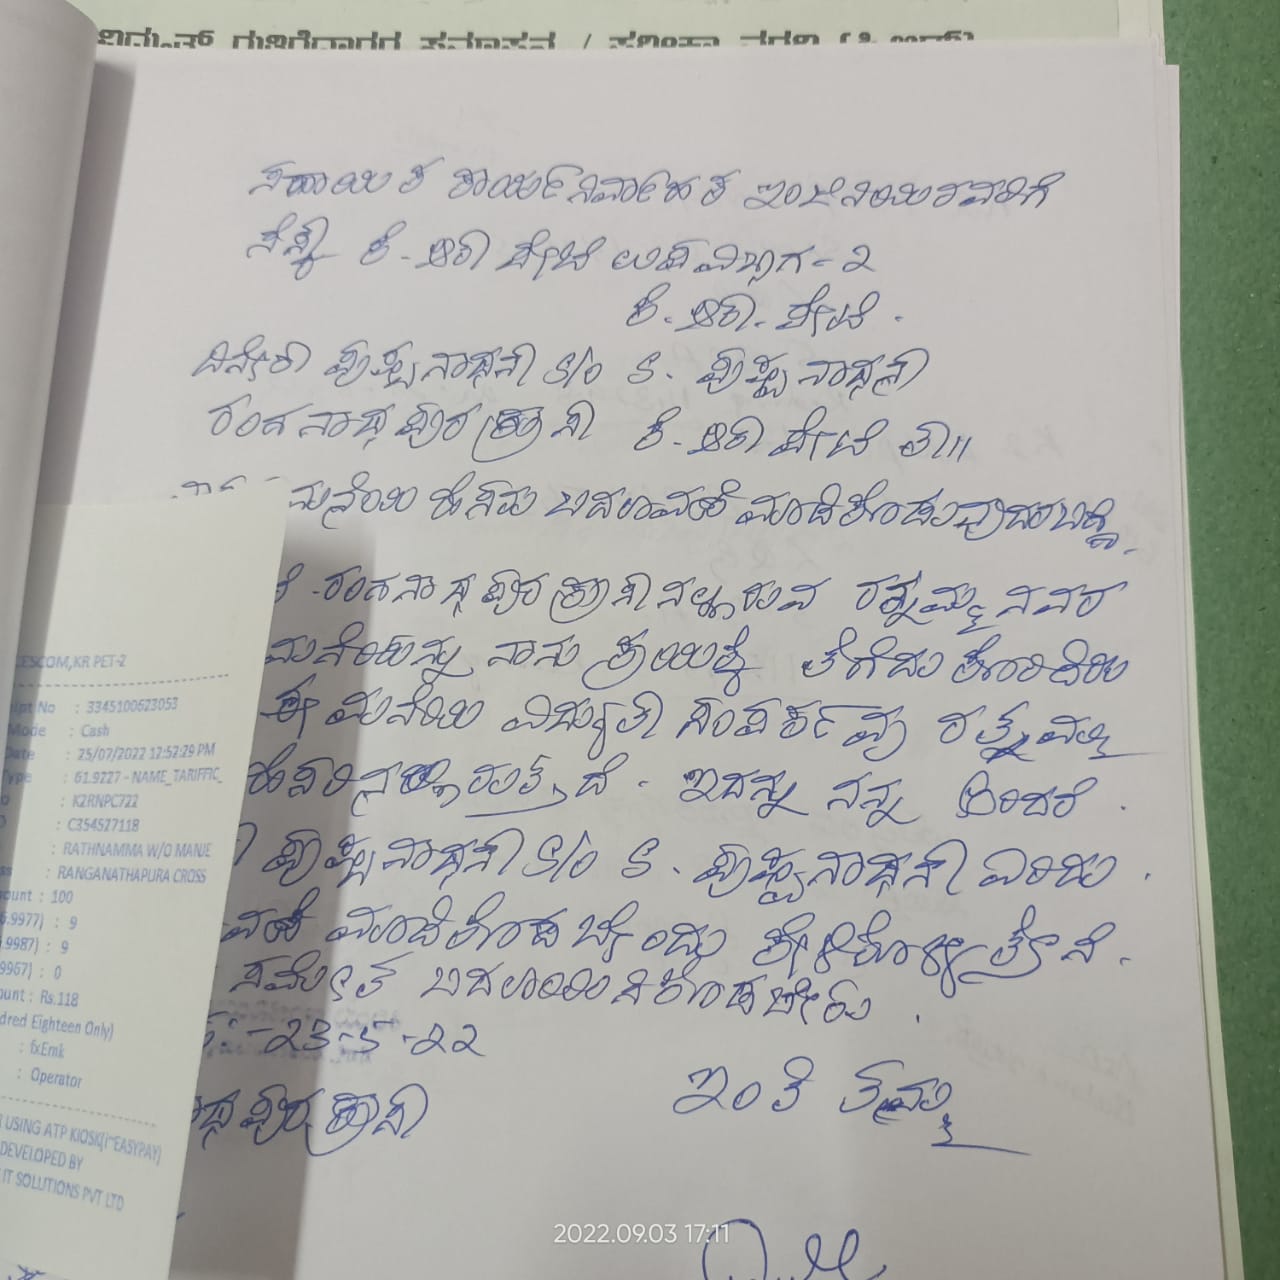 ಸಹಾಯಕ ಕಾರ್ಯನಿರ್ವಾಹಕ ಇಂಜಿನಿಯರವರಿಗೆ
ಸೆಸ್ಕ್ ಕೆ.ಆರ್ ಪೇಟೆ ಉಪವಿಭಾಗ-೨
ಕೆ.ಆರ್.ಪೇಟೆ.
ಪುಷ್ಪನಾಥನ್ S/o S. ಪುಷ್ಪನಾಥನ್
ರಂಗನಾಥಪುರ ಕ್ರಾಸ್ ಕೆ.ಆರ್ ಪೇಟೆ ತಾ||
ಮನೆಯ ಹೆಸರು ಬದಲಾವಣೆ ಮಾಡಿಕೊಡುವುದರ ಬಗ್ಗೆ.
ರಂಗನಾಥಪುರ ಕ್ರಾಸ್‌ನಲ್ಲಿರುವ ರತ್ನಮ್ಮನವರ
ಮನೆಯನ್ನು ನಾನು ಕ್ರಯಕ್ಕೆ ತೆಗೆದು
ಈ ಮನೆಯ ವಿದ್ಯುತ್ ಸಂಪರ್ಕವು ರತ್ನಮ್ಮ
ಹೆಸರಿನಲ್ಲಿರುತ್ತದೆ. ಇದನ್ನು ನನ್ನ
ಪುಷ್ಪನಾಥನ್ S/o S. ಪುಷ್ಪನಾಥನ್ ಎಂದು.
ವಣೆ ಮಾಡಿಕೊಡಬೇಕೆಂದು ಕೇಳಿಕೊಳ್ಳುತ್ತೇನೆ.
ಬದಲಾಯಿಸಿಕೊಡಬೇಕು.
-23-5-22
ಕ್ರಾಸ್
ಇಂತಿ ತಮ್ಮ
CESCOM,KR PET-2
ipt No : 3345100623053
Mode : Cash
Date : 25/07/2022 12:52:29 PM
Type : 61.9227 - NAME_TARIFFIC_
: K2RNPC722
: C354527118
: RATHNAMMA W/O MANJE
: RANGANATHAPURA CROSS
ount : 100
.9977) : 9
.9987) : 9
9967) : 0
ount : Rs.118
dred Eighteen Only)
: fxEmk
: Operator
USING ATP KIOSK(i~EASYPAY)
DEVELOPED BY
IT SOLUTIONS PVT LTD
2022.09.03 17:11